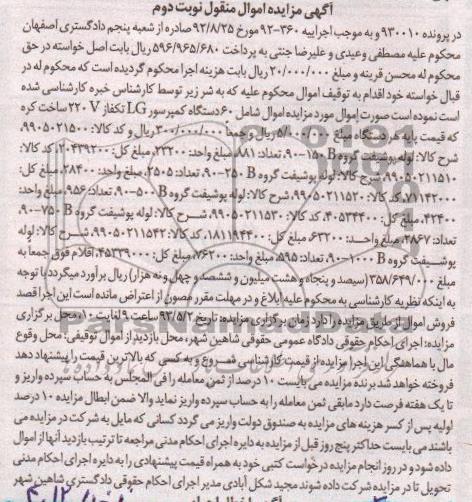 آگهی مزایده اموال منقول نوبت دوم
در پرونده ۹۳۰۰۱۰ و به موجب اجراییه ۳۶۰-۹۲ مورخ ۹۲/۸/۲۵ صادره از شعبه پنجم دادگستری اصفهان
محکوم علیه مصطفی وعیدی و علیرضا جنتی به پرداخت ۵۹۶/۹۶۵/۶۸۰ ریال بابت اصل خواسته در حق
محکوم له محسن قرینه و مبلغ ۲۰/۰۰۰/۰۰۰ ریال بابت هزینه اجرا محکوم گردیده است که محکوم له در
قبال خواسته خود اقدام به توقیف اموال محکوم علیه که به شرر زیر توسط کارشناس خبره کارشناسی شده
است نموده است صورت اموال مورد مزایده اموال شامل ۶۰ دستگاه کمپرسور LG تکفاز ۲۲۰V ساخت کره
که قیمت پایه هر دستگاه مبلغ ۵/۰۰۰/۰۰۰ ریال و جمعا ۳۰۰/۰۰۰/۰۰۰ ریال و کد کالا: ۹۹۰۵۰۲۱۵۰۰،
شرح کالا: لوله پوشیفت گروه B ۱۵۰-۹۰، تعداد: ۸۸۱، مبلغ واحد: ۲۳۲۰۰، مبلغ کل: ۲۰۴۳۹۲۰۰، کد کالا:
۹۹۰۵۰۲۱۱۵۱۰، شرح کالا: لوله پوشیفت گروه B ۲۵۰-۹۰، تعداد: ۲۵۰۵، مبلغ واحد: ۲۸۴۰۰، مبلغ کل:
۷۱۱۴۲۰۰۰، کد کالا: ۹۹۰۵۰۲۱۱۵۲۰، شرح کالا: لوله پوشیفت گروه B ۵۰۰-۹۰، تعداد: ۹۵۶، مبلغ واحد:
۴۲۴۰۰، مبلغ کل: ۴۰۵۳۴۴۰۰، کد کالا: ۹۹۰۵۰۲۱۱۵۳۰، شرح کالا: لوله پوشیفت گروه B ۷۵۰-۹۰،
تعداد: ۲۸۶۷، مبلغ واحد: ۶۳۲۰۰، مبلغ کل: ۱۸۱۱۹۴۴۰۰، کد کالا: ۹۹۰۵۰۲۱۱۵۴۲، شرح کالا: لوله
پوشیفت گروه B ۱۰۰۰-۹۰، تعداد: ۵۹۵، مبلغ واحد: ۷۶۲۰۰، مبلغ کل: ۴۵۳۳۹۰۰۰، اقلام فوق جمعاً به
مبلغ ۳۵۸/۶۴۹/۰۰۰ (سیصد و پنجاه و هشت میلیون و ششصد و چهل و نه هزار) ریال برآورد میگردد با توجه
به اینکه نظریه کارشناسی به محکوم علیه ابلاغ و در مهلت مقرر مصون از اعتراض مانده است این اجرا قصد
فروش اموال از طریق مزایده را دارد زمان برگزاری مزایده: تاریخ ۹۳/۵/۲ ساعت ۹ لغایت ۱۰ محل برگزاری
مزایده: اجرای احکام حقوقی دادگاه عمومی حقوقی شاهین شهر، محل بازدید از اموال توقیفی: محل وقوع
مال با هماهنگی این اجرا مزایده از قیمت کارشناسی شروع و به کسی که بالاترین قیمت را پیشنهاد دهد
فروخته خواهد شد برنده مزایده می بایست ۱۰ درصد از ثمن معامله را فی المجلس به حساب سپرده واریز و
تا یک هفته فرصت دارد مابقی ثمن معامله را به حساب سپرده واریز نماید والا ضمن ابطال مزایده ۱۰ درصد
اولیه پس از کسر هزینه های مزایده به صندوق دولت واریز می گردد کسانی که مایل به شرکت در مزایده می
باشند می بایست حداکثر پنج روز قبل از مزایده به دایره اجرای احکام مدنی مراجعه تا ترتیب بازدید آنها از اموال
داده شود و در روز انجام مزایده درخواست کتبی خود به همراه قیمت پیشنهادی را به دایره اجرای احکام مدنی
تحویل تا در مزایده شرکت داده شوند مجید شکل آبادی مدیر اجرای احکام حقوقی دادگستری شاهین شهر
ParsNamadData